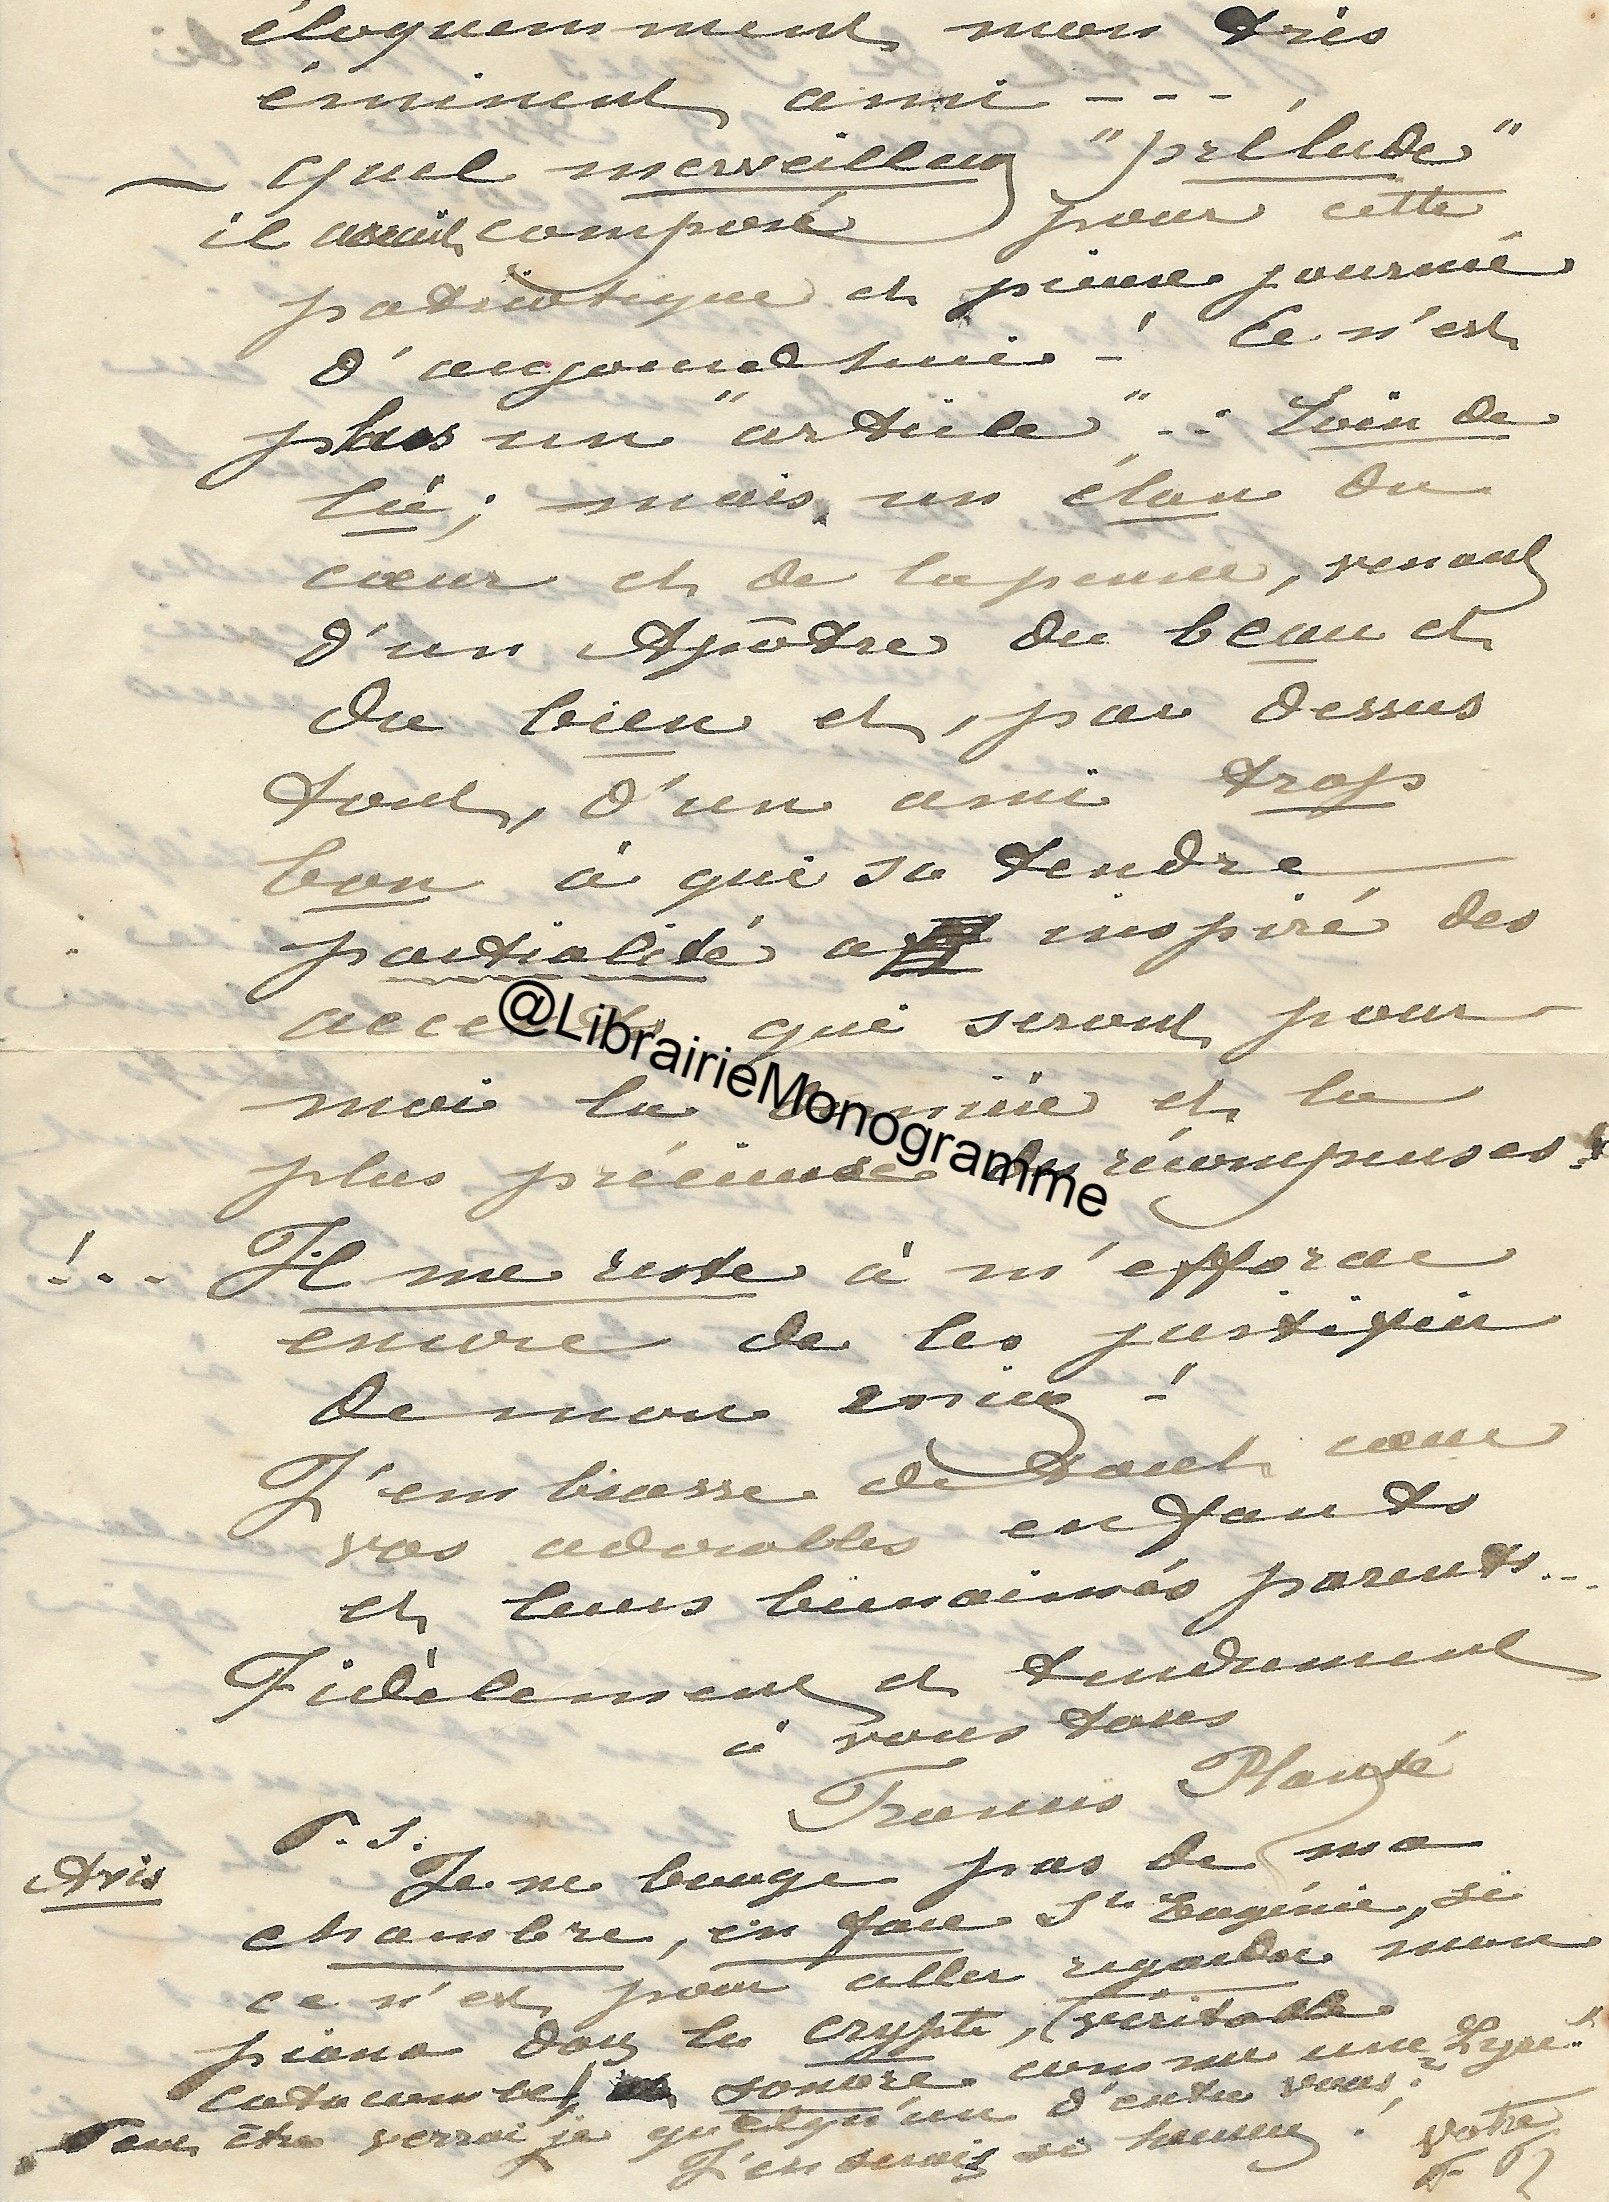 éloquemment mon très
éminent ami - - - ,
quel merveilleux "prélude"
il avait composé pour cette
patriotique et pieuse journée
d'aujourd'hui - ! Ce n'est
plus un "article" .. : Loin de
là ; mais un élan du
cœur et de la pensée, venant
d'un Apôtre du beau et
du bien et, par dessus
tout, d'un ami trop
bon à qui sa tendre
partialité a inspiré des
accents qui seront pour
moi la dernière et la
plus précieuse des récompenses !
@LibrairieMonogramme
! - . . Il me reste à m'efforcer
encore de les justifier
de mon mieux - !
J'embrasse de tout cœur
vos adorables enfants
et leurs bienaimés parents...
Fidèlement et tendrement
à vous tous
Francis Planté
P. S.
Avis Je ne bouge pas de ma
chambre, en face Ste Eugénie, si
ce n'est pour aller regarder mon
piano dans la crypte, (véritable
catacombe) sonore comme une Lyre"
Peut être verrai je quelqu'un d'entre vous ?
J'en serais si heureux ! Votre
F. P